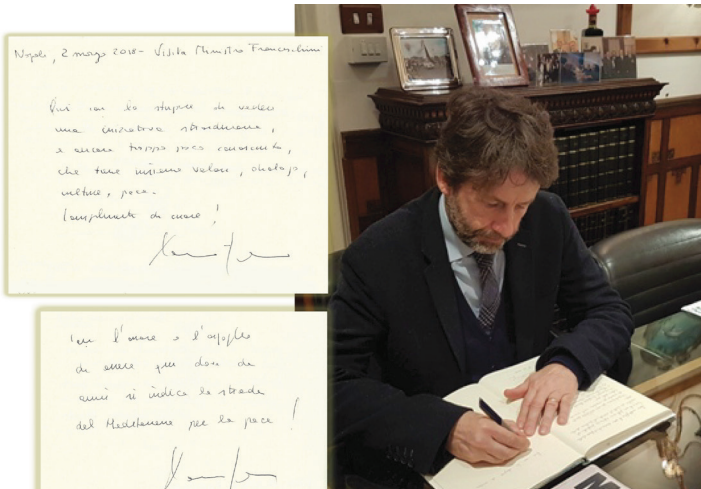 Napoli, 2 marzo 2018 - Visita Ministro Franceschini
Qui con lo stupore di vedere
una iniziativa straordinaria,
e ancora troppo poco conosciuta,
che tiene insieme valori, dialogo,
culture, pace.
Complimenti di cuore!
Con l'onore e l'orgoglio
di essere qui dove da
anni si indica la strada
del Mediterraneo per la pace!